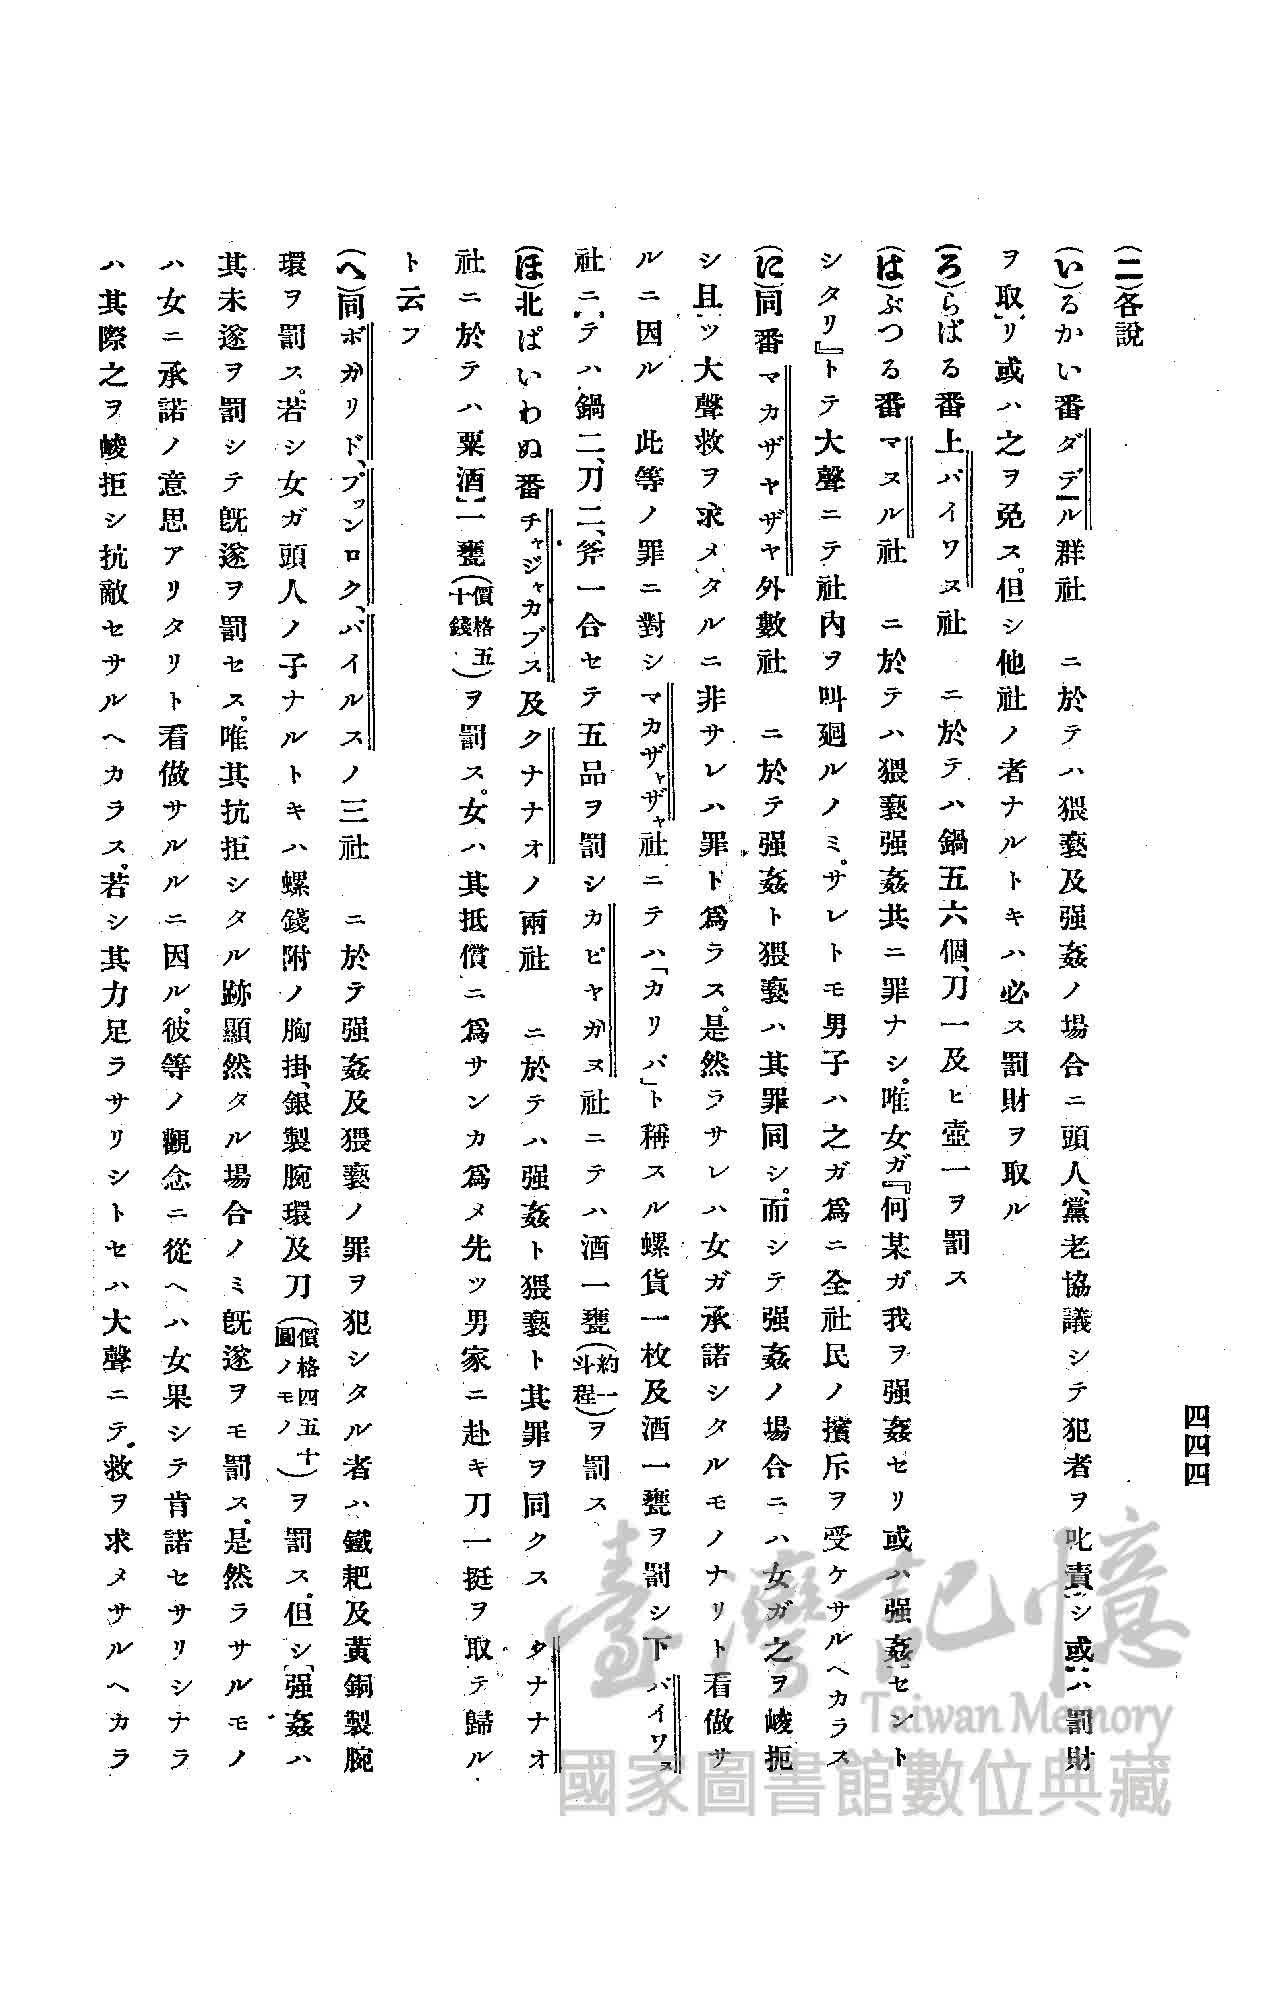 四四四
(二)各說
(い)るかい番ダデル群社　ニ於テハ猥褻及强姦ノ場合ニ頭人、黨老協議シテ犯者ヲ叱責シ或ハ罰財
ヲ取リ或ハ之ヲ免ス。但シ他社ノ者ナルトキハ必ス罰財ヲ取ル
(ろ)らばる番上バイワヌ社　ニ於テハ鍋五六個、刀一及ヒ壺一ヲ罰ス
(は)ぶつる番マヌル社　ニ於テハ猥褻强姦共ニ罪ナシ。唯女ガ『何某ガ我ヲ强姦セリ或ハ强姦セント
シタリ』トテ大聲ニテ社內ヲ叫廻ルノミ。サレトモ男子ハ之ガ爲ニ全社民ノ擯斥ヲ受ケサルヘカラス
(に)同番マカザヤザヤ外數社　ニ於テ强姦ト猥褻ハ其罪同シ。而シテ强姦ノ場合ニハ女ガ之ヲ峻拒
シ且ツ大聲救ヲ求メタルニ非サレハ罪ト爲ラス。是然ラサレハ女ガ承諾シタルモノナリト看做サ
ルニ因ル　此等ノ罪ニ對シマカザャザャ社ニテハ「カリパ」ト稱スル螺貨一枚及酒一甕ヲ罰シ下バイワヌ
社ニテハ鍋二、刀二、斧一合セテ五品ヲ罰シカピヤガヌ社ニテハ酒一甕(約一斗程)ヲ罰ス
(ほ)北ぱいわぬ番チャジャカブス及クナナオノ兩社　ニ於テハ强姦ト猥褻ト其罪ヲ同クス　タナナオ
社ニ於テハ粟酒一甕(價格五十錢)ヲ罰ス。女ハ其抵償ニ爲サンカ爲メ先ツ男家ニ赴キ刀一挺ヲ取テ歸ル
ト云フ
(へ)同ボガリド、ブッンロク、バイルスノ三社　ニ於テ强姦及猥褻ノ罪ヲ犯シタル者ハ鐵耙及黃銅製腕
環ヲ罰ス。若シ女ガ頭人ノ子ナルトキハ螺錢附ノ胸掛、銀製腕環及刀(價格四五十圓ノモノ)ヲ罰ス。但シ强姦ハ
其未遂ヲ罰シテ旣遂ヲ罰セス。唯其抗拒シタル跡顯然タル場合ノミ旣遂ヲモ罰ス。是然ラサルモノ
ハ女ニ承諾ノ意思アリタリト看做サルルニ因ル。彼等ノ觀念ニ從ヘハ女果シテ肯諾セサリシナラ
ハ其際之ヲ峻拒シ抗敵セサルヘカラス。若シ其力足ラサリシトセハ大聲ニテ救ヲ求メサルヘカラ
臺灣記憶
Taiwan Memory
國家圖書館數位典藏